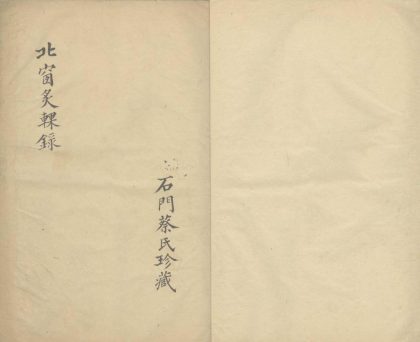 北窗炙輠錄
石門蔡氏珍藏